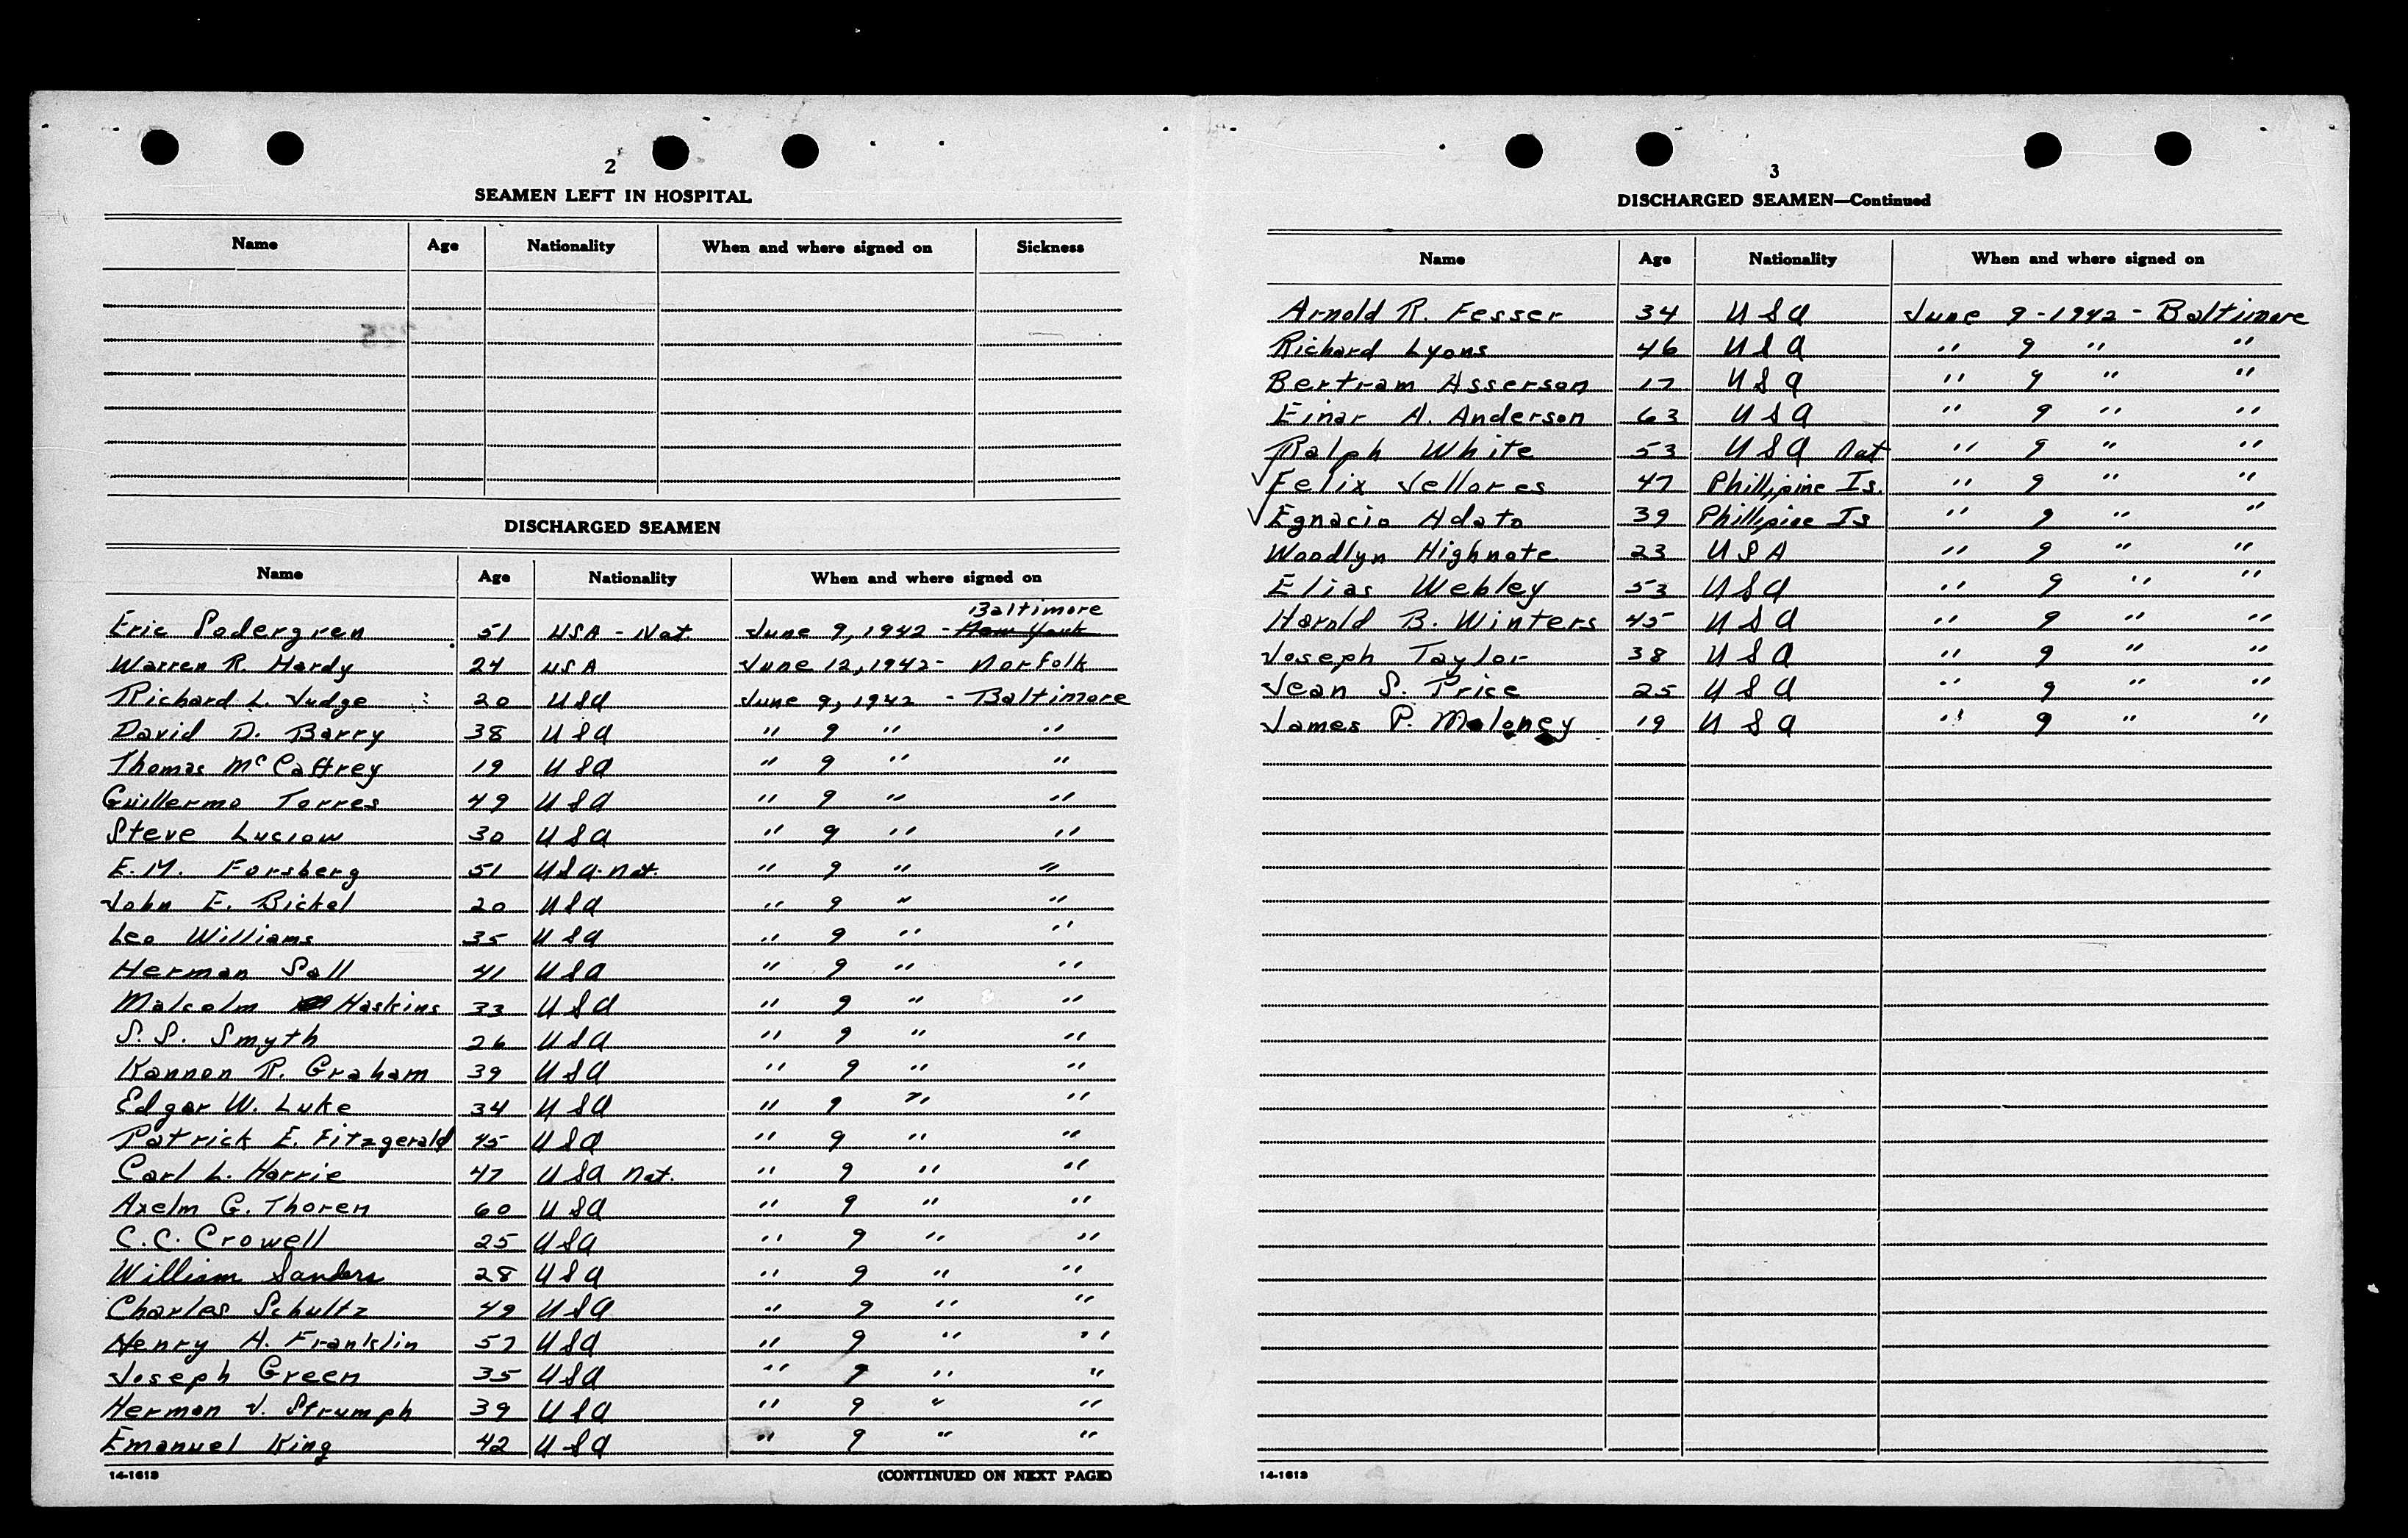 2
SEAMEN LEFT IN HOSPITAL
Name Age Nationality When and where signed on Sickness
DISCHARGED SEAMEN
Name Age Nationality When and where signed on
Baltimore
Eric Sodergren 51 USA - Nat. June 9, 1942 - New York
Warren R. Hardy 24 USA June 12, 1942 - Norfolk
Richard L. Judge 20 USA June 9, 1942 - Baltimore
David D. Barry 38 USA " 9 " "
Thomas McCaffrey 19 USA " 9 " "
Guillermo Torres 49 USA " 9 " "
Steve Luciow 30 USA " 9 " "
E.M. Forsberg 51 USA. Nat. " 9 " "
John E. Bickel 20 USA " 9 " "
Leo Williams 35 USA " 9 " "
Herman Sall 41 USA " 9 " "
Malcolm Haskins 33 USA " 9 " "
S.S. Smyth 26 USA " 9 " "
Kannon R. Graham 39 USA " 9 " "
Edgar W. Luke 34 USA " 9 " "
Patrick E. Fitzgerald 45 USA " 9 " "
Carl L. Harrie 47 USA Nat. " 9 " "
Axelm G. Thoren 60 USA " 9 " "
C.C. Crowell 25 USA " 9 " "
William Sanders 28 USA " 9 " "
Charles Schultz 49 USA " 9 " "
Henry H. Franklin 57 USA " 9 " "
Joseph Green 35 USA " 9 " "
Herman J. Strumph 39 USA " 9 " "
Emanuel King 42 USA " 9 " "
14-1613 (CONTINUED ON NEXT PAGE)
3
DISCHARGED SEAMEN—Continued
Name Age Nationality When and where signed on
Arnold R. Fesser 34 USA June 9-1942 - Baltimore
Richard Lyons 46 USA " 9 " "
Bertram Asserson 17 USA " 9 " "
Einar A. Anderson 63 USA " 9 " "
Ralph White 53 USA Nat " 9 " "
✓ Felix Vellores 47 Phillipine Is. " 9 " "
✓ Egnacio Adato 39 Phillipine Is " 9 " "
Woodlyn Highnote 23 USA " 9 " "
Elias Webley 53 USA " 9 " "
Harold B. Winters 45 USA " 9 " "
Joseph Taylor 38 USA " 9 " "
Jean S. Price 25 USA " 9 " "
James P. Moloney 19 USA " 9 " "
14-1613